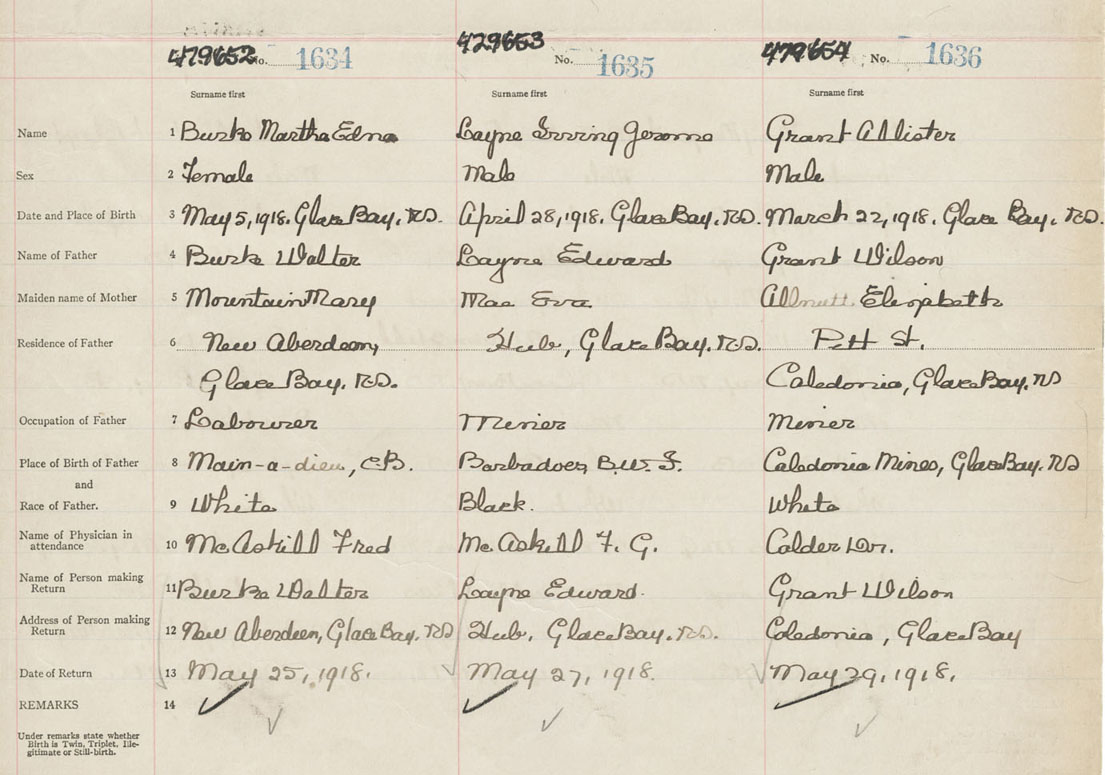 479652 No. 1634 429653 No. 1635 479654 No. 1636
Surname first Surname first Surname first
Name 1 Burke Martha Edna Layne Irving Jerome Grant Allister
Sex 2 Female Male Male
Date and Place of Birth 3 May 5, 1918. Glace Bay. NS. April 28, 1918. Glace Bay. NS. March 22, 1918. Glace Bay. NS.
Name of Father 4 Burke Walter Layne Edward Grant Wilson
Maiden name of Mother 5 Mountain Mary Mae Eva Allnutt Elizabeth
Residence of Father 6 New Aberdeen, Hub, Glace Bay. NS. Pitt St.
Glace Bay. NS. Caledonia, Glace Bay. NS
Occupation of Father 7 Labourer Miner Miner
Place of Birth of Father 8 Main-a-dieu, C.B. Barbadoes B.W.I. Caledonia Mines, Glace Bay. NS
and
Race of Father. 9 White Black. White
Name of Physician in attendance 10 McAskill Fred McAskill F. G. Calder Dr.
Name of Person making Return 11 Burke Walter Layne Edward. Grant Wilson
Address of Person making Return 12 New Aberdeen, Glace Bay. NS Hub, Glace Bay. NS. Caledonia, Glace Bay
Date of Return 13 May 25, 1918. May 27, 1918. May 29, 1918.
REMARKS 14
Under remarks state whether
Birth is Twin, Triplet, Ille-
gitimate or Still-birth.